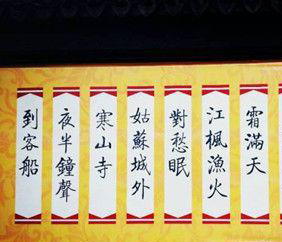 霜滿天
江楓漁火
對愁眠
姑蘇城外
寒山寺
夜半鐘聲
到客船